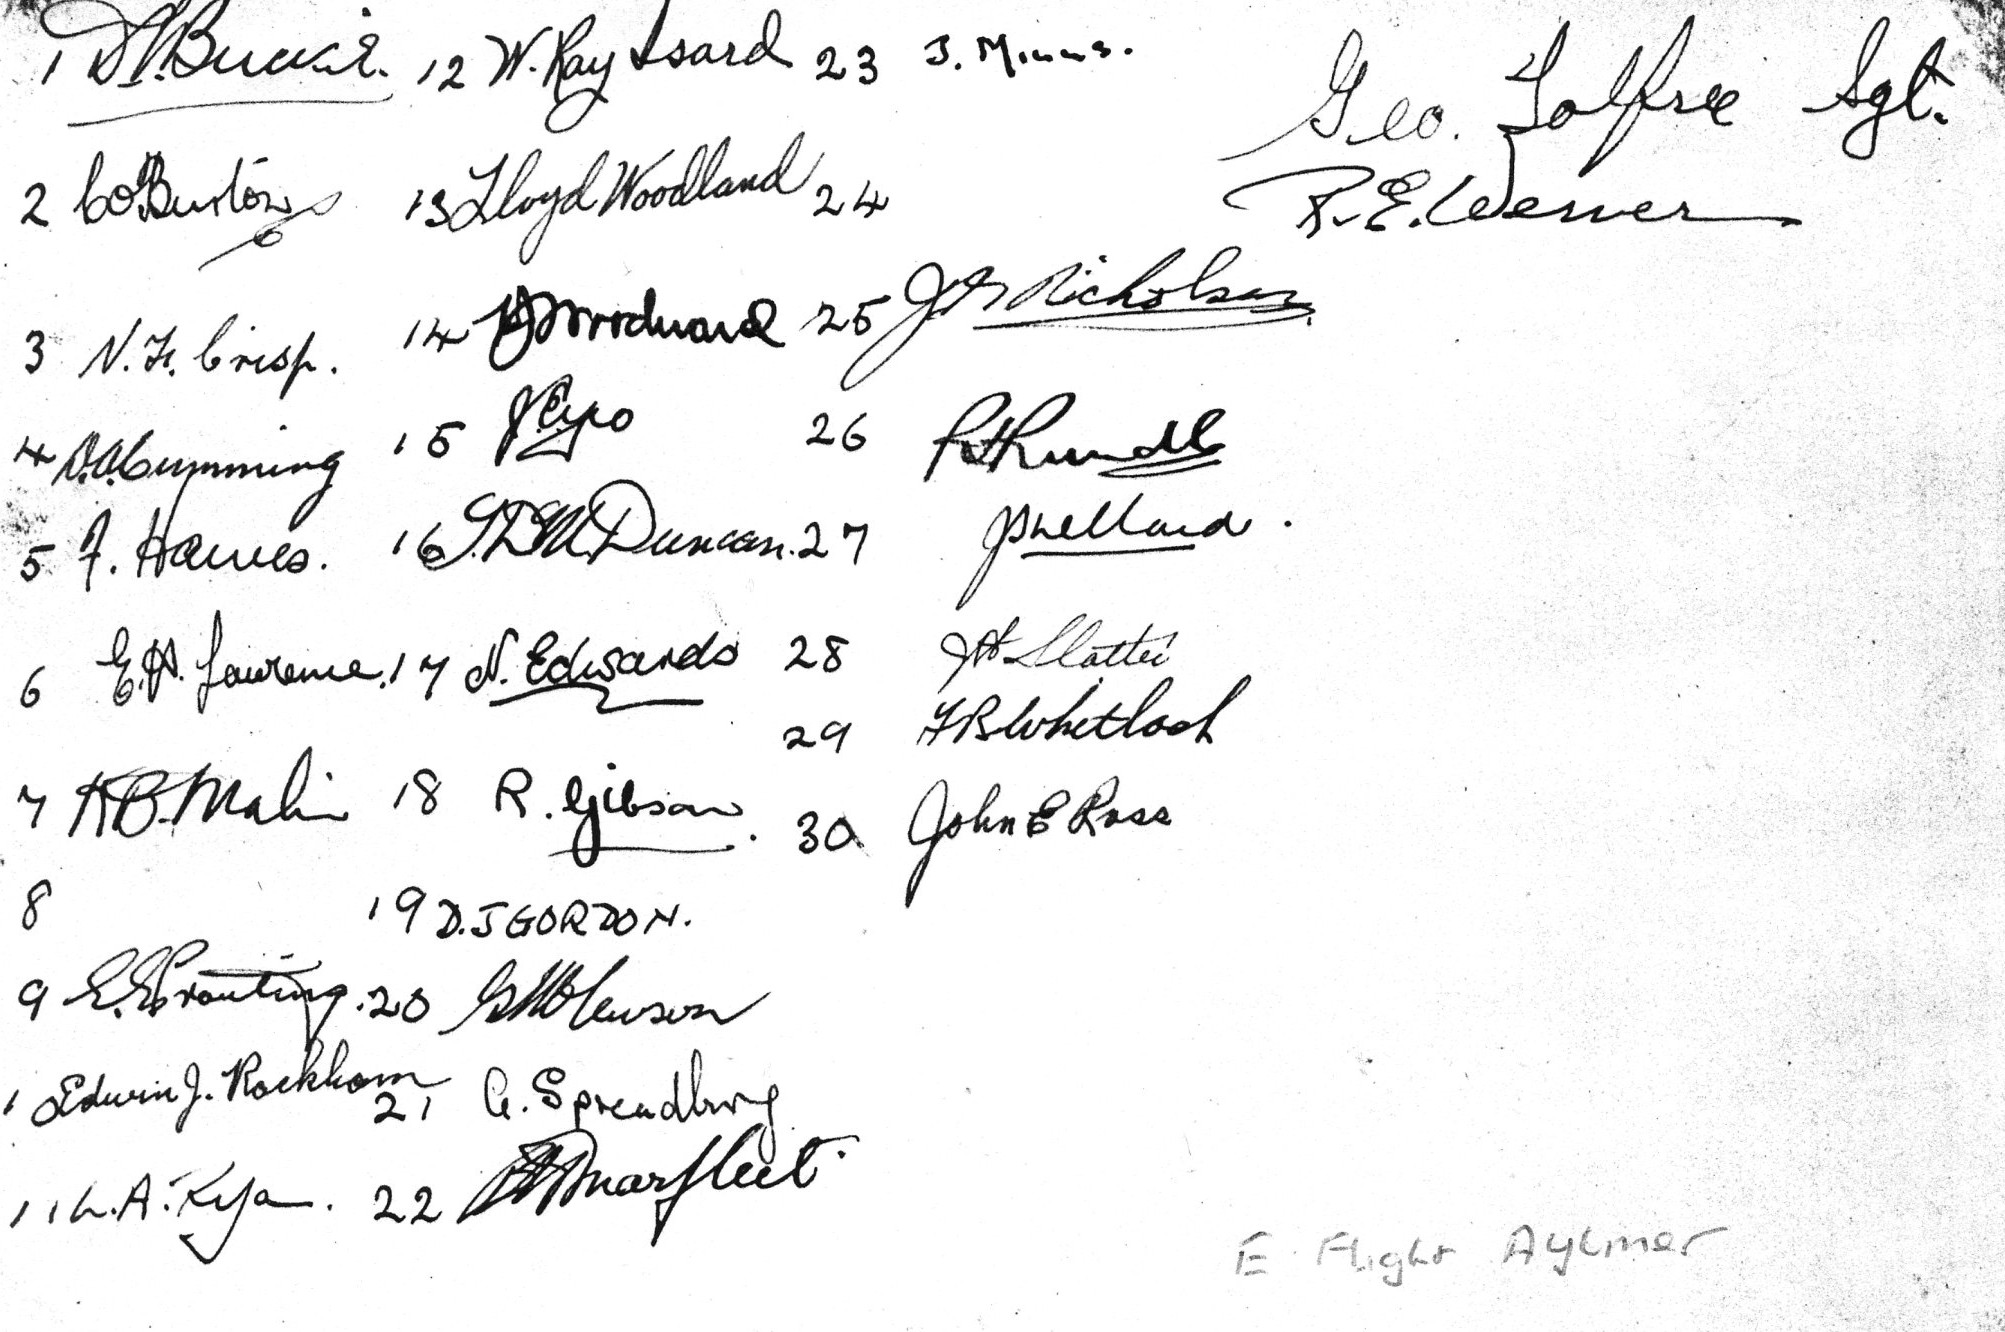 1 D. Buckie.
2 Burton
3 N. F. Crisp.
4 D.A. Cumming
5 F. Hawes.
6 E.H. Lawrence.
7 H.B. Malin
8
9 E.E. Prouting.
1 Edwin J. Rackham
11 L. A. Ryan.
12 W. Ray Isard
13 Lloyd Woodland
14 Woodward
15
16 G.D.M. Duncan.
17 N. Edwards
18 R. Gibson.
19 D.J GORDON.
20
21 G. Spreadbury
22 Marfleet.
23 J. Minns.
24
25 Nicholson
26 Rundle
27
28 Slatter
29 F B Whitlock
30 John E Ross
Geo. Tolfree Sgt.
R. E. Werner
E Flight Aylmer